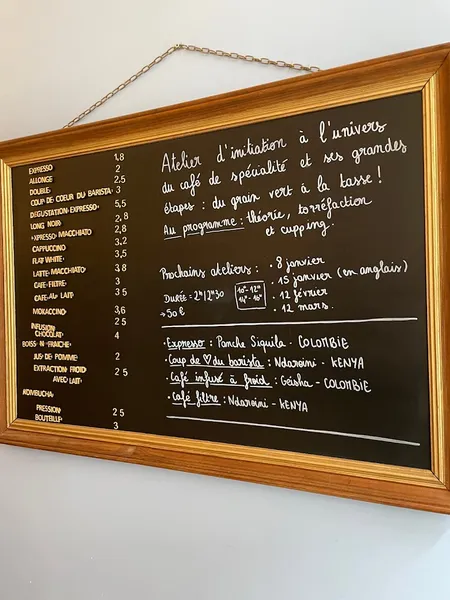 EXPRESSO 1,8
ALLONGE 2
DOUBLE 2.5
COUP DE COEUR DU BARISTA 3
DEGUSTATION EXPRESSO 5,5
LONG NOIR 2,8
EXPRESSO MACCHIATO 2,8
CAPPUCCINO 3,2
FLAT WHITE 3,5
LATTE MACCHIATO 3 8
CAFE FILTRE 3
CAFE AU LAIT 3 5
MOKACCINO 3,6
INFUSION 2 5
CHOCOLAT 4
BOISS N FRAICHE
JUS DE POMME 2
EXTRACTION FROID 2 5
AVEC LAIT
KOMBUCHA
PRESSION 2 5
BOUTEILLE 3
Atelier d'initiation à l'univers
du café de spécialité et ses grandes
étapes : du grain vert à la tasse !
Au programme : théorie, torréfaction
et cupping.
Prochains ateliers : • 8 janvier
• 15 janvier (en anglais)
DURÉE = 2H | 2H30 10H-12H • 12 février
→ 50 € 14H-16H • 12 mars.
• Expresso : Ponche Siquila - COLOMBIE
• Coup de ♥ du barista : Ndaroini - KENYA
• Café infusé à froid : Geisha - COLOMBIE
• Café filtre : Ndaroini - KENYA